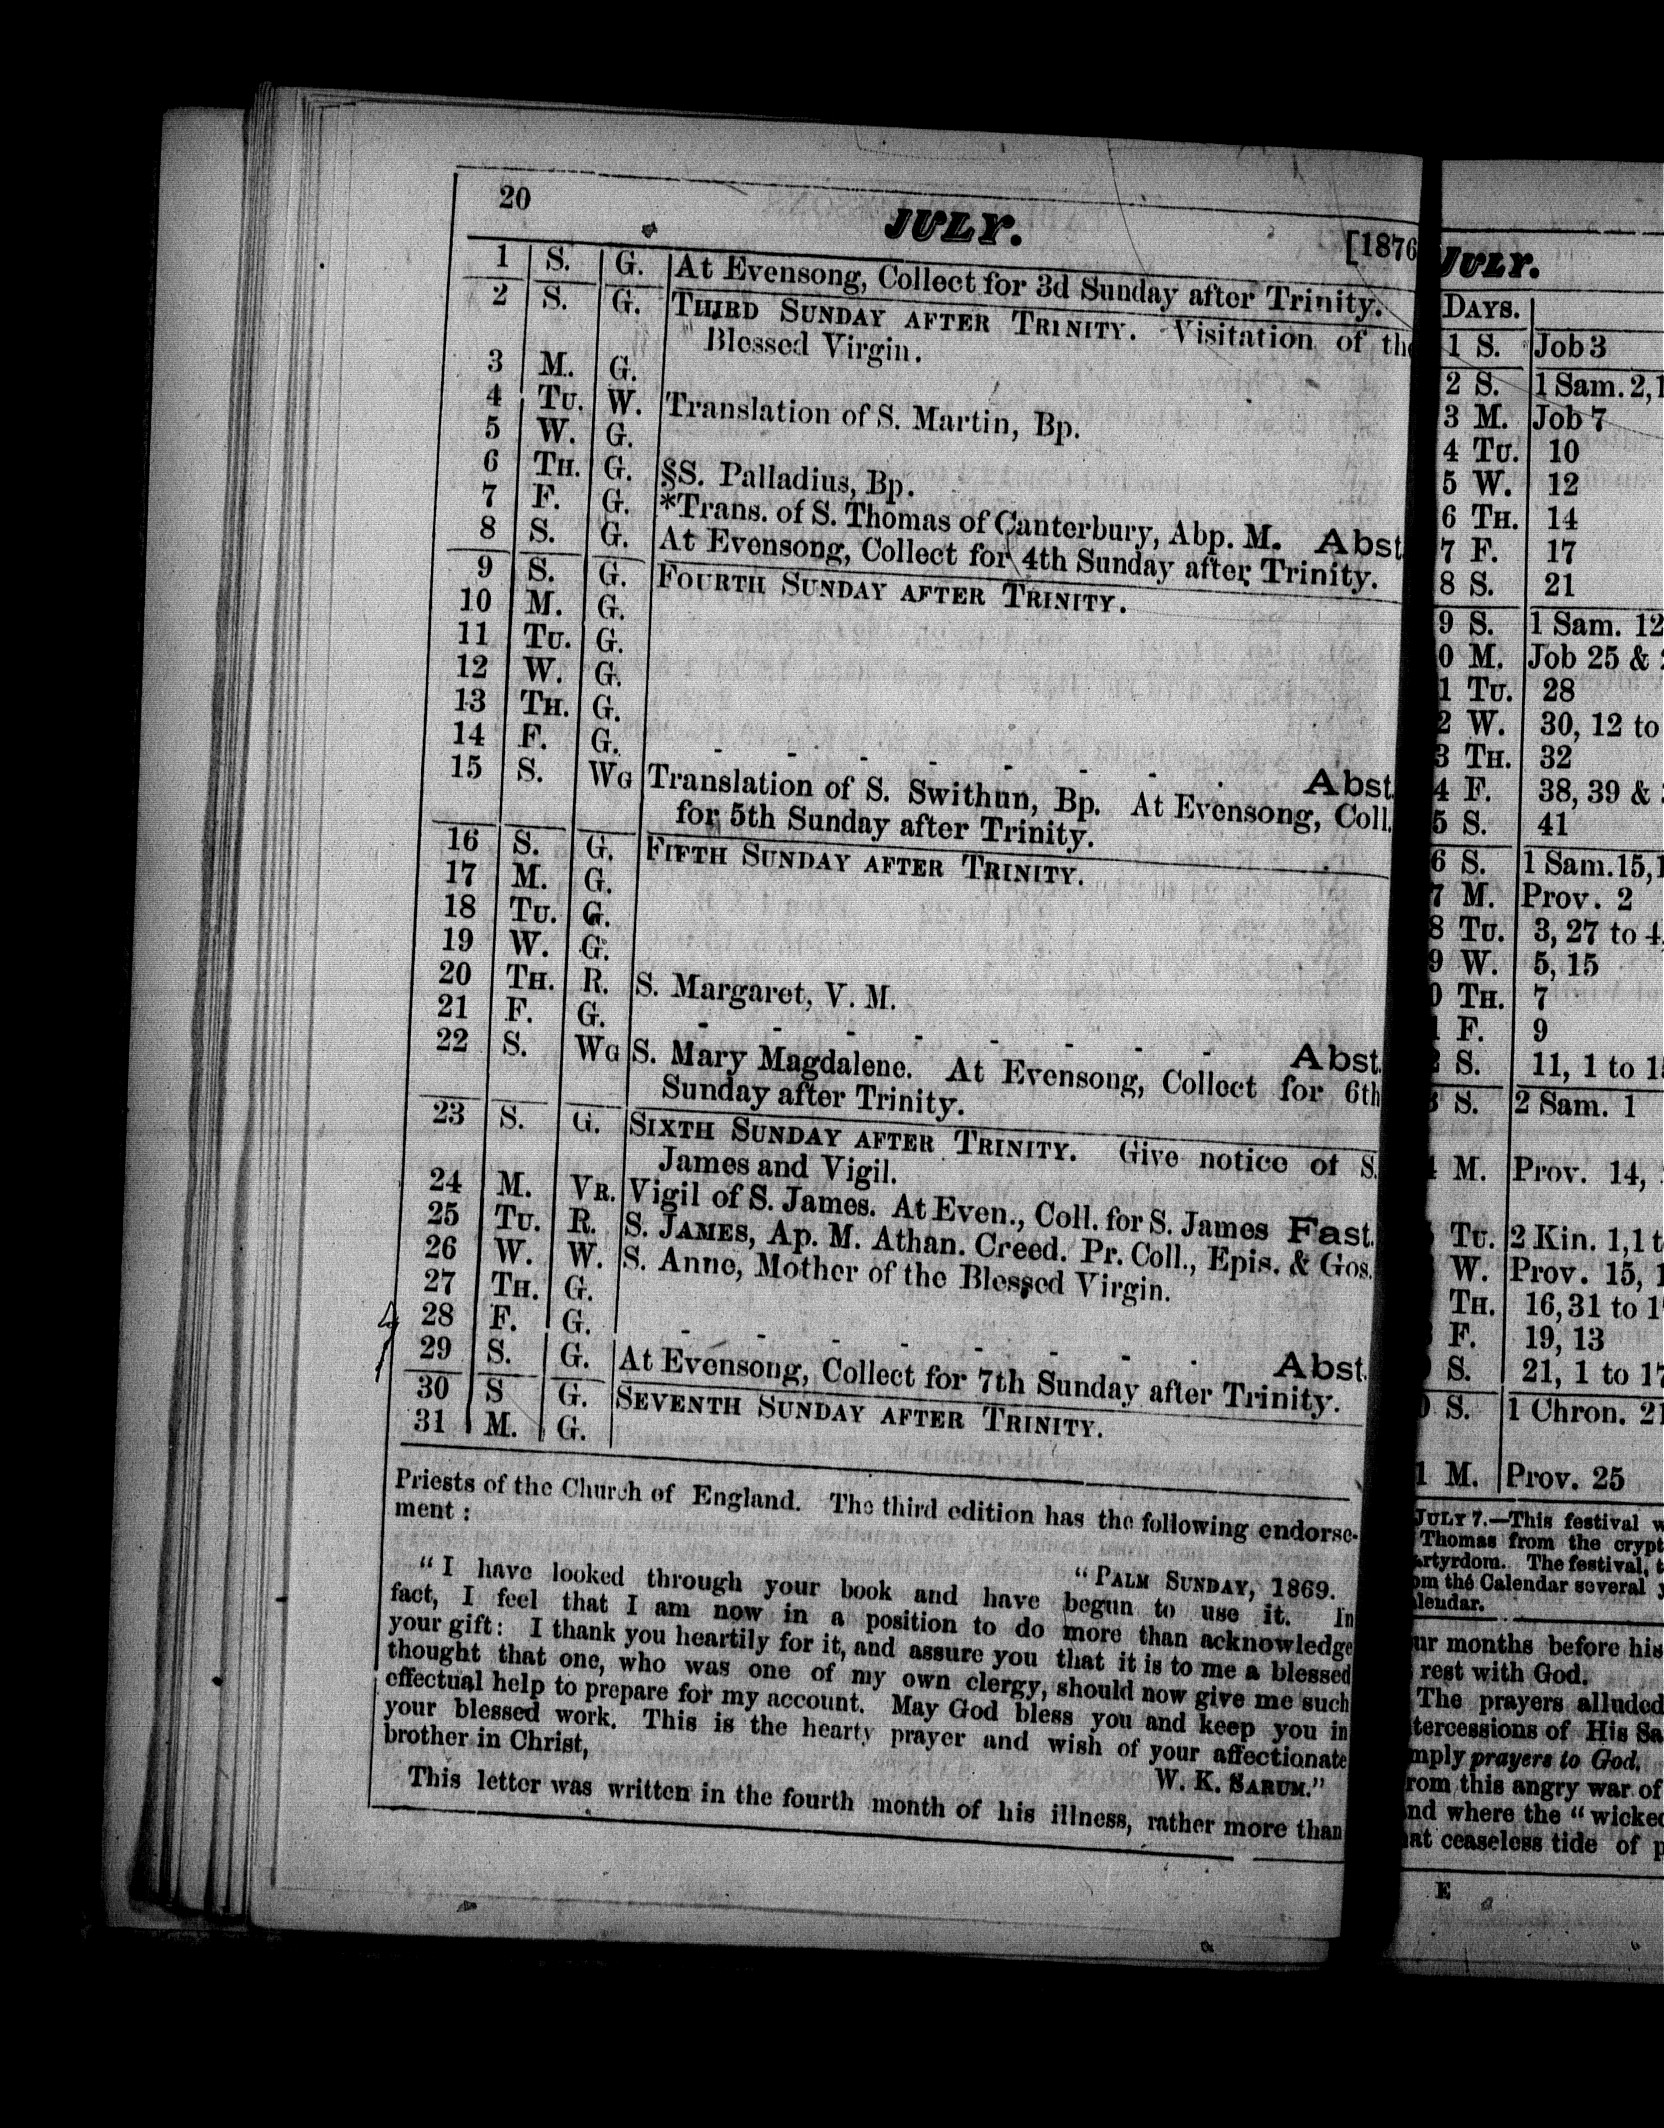 20
JULY.
[1876
1 S. G. At Evensong, Collect for 3d Sunday after Trinity.
2 S. G. THIRD SUNDAY AFTER TRINITY. Visitation of the
Blessed Virgin.
3 M. G.
4 TU. W. Translation of S. Martin, Bp.
5 W. G.
6 TH. G. §S. Palladius, Bp.
7 F. G. *Trans. of S. Thomas of Canterbury, Abp. M. Abst.
8 S. G. At Evensong, Collect for 4th Sunday after Trinity.
9 S. G. FOURTH SUNDAY AFTER TRINITY.
10 M. G.
11 TU. G.
12 W. G.
13 TH. G.
14 F. G. - - - - - - - - Abst.
15 S. WG Translation of S. Swithun, Bp. At Evensong, Coll.
for 5th Sunday after Trinity.
16 S. G. FIFTH SUNDAY AFTER TRINITY.
17 M. G.
18 TU. G.
19 W. G.
20 TH. R. S. Margaret, V. M.
21 F. G. - - - - - - - - Abst.
22 S. WG S. Mary Magdalene. At Evensong, Collect for 6th
Sunday after Trinity.
23 S. G. SIXTH SUNDAY AFTER TRINITY. Give notice of S.
James and Vigil.
24 M. VR. Vigil of S. James. At Even., Coll. for S. James Fast.
25 TU. R. S. JAMES, Ap. M. Athan. Creed. Pr. Coll., Epis. & Gos.
26 W. W. S. Anne, Mother of the Blessed Virgin.
27 TH. G.
28 F. G. - - - - - - - - Abst.
29 S. G. At Evensong, Collect for 7th Sunday after Trinity.
30 S G. SEVENTH SUNDAY AFTER TRINITY.
31 M. G.
Priests of the Church of England. The third edition has the following endorse-
ment :
"PALM SUNDAY, 1869.
"I have looked through your book and have begun to use it. In
fact, I feel that I am now in a position to do more than acknowledge
your gift: I thank you heartily for it, and assure you that it is to me a blessed
thought that one, who was one of my own clergy, should now give me such
effectual help to prepare for my account. May God bless you and keep you in
your blessed work. This is the hearty prayer and wish of your affectionate
brother in Christ,
W. K. SARUM."
This letter was written in the fourth month of his illness, rather more than
JULY.
DAYS.
1 S. Job 3
2 S. 1 Sam. 2, 1
3 M. Job 7
4 TU. 10
5 W. 12
6 TH. 14
7 F. 17
8 S. 21
9 S. 1 Sam. 12
0 M. Job 25 &
1 TU. 28
2 W. 30, 12 to
3 TH. 32
4 F. 38, 39 &
5 S. 41
6 S. 1 Sam. 15, 1
7 M. Prov. 2
8 TU. 3, 27 to 4,
9 W. 5, 15
TH. 7
F. 9
S. 11, 1 to 1
S. 2 Sam. 1
M. Prov. 14,
TU. 2 Kin. 1, 1 t
W. Prov. 15, 1
TH. 16, 31 to 1
F. 19, 13
S. 21, 1 to 17
S. 1 Chron. 21
1 M. Prov. 25
JULY 7.—This festival w
Thomas from the crypt
artyrdom. The festival, t
om the Calendar several y
lendar.
ur months before his
rest with God.
The prayers alluded
tercessions of His Sa
mply prayers to God,
rom this angry war of
nd where the "wicked
at ceaseless tide of p
E